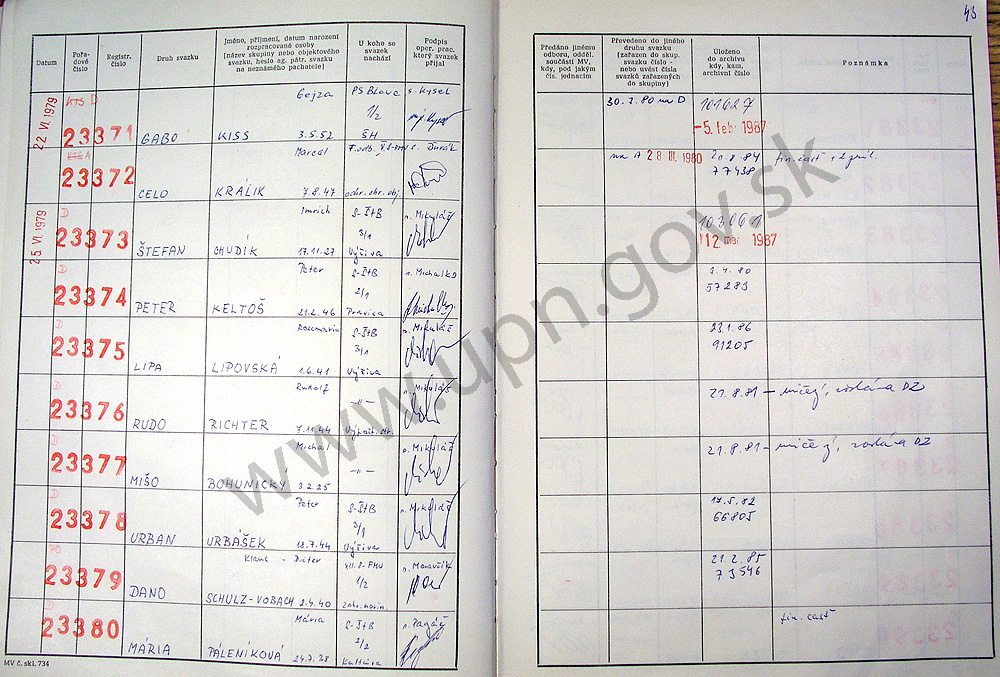 43
Datum
Pořadové číslo
Registr. číslo
Druh svazku
Jméno, příjmení, datum narození
rozpracované osoby
(název skupiny nebo objektového
svazku, heslo ag. pátr. svazku
na neznámého pachatele)
U koho se
svazek
nachází
Podpis
oper. prac.
který svazek
přijal
Předáno jinému
odboru, odděl.
součásti MV,
kdy, pod jakým
čís. jednacím
Převedeno do jiného
druhu svazku
(zařazen do skup.
svazku číslo -
nebo uvést čísla
svazků zařazených
do skupiny)
Uloženo
do archivu
kdy, kam,
archivní číslo
Poznámka
22 VI. 1979
KTS D
23371
GABO
Gejza
KISS 3.5.52
PS Blava
1/2
ŠH
s. Kysel
30.7.80 na D
101627
-5. feb 1987
KTS A
23372
CELO
Marcel
KRÁLIK 7.8.47
ochr. chr. obj.
na A 28 III. 1980
20.8.84
77438
fin. časť
25 VI. 1979
D
23373
ŠTEFAN
Imrich
CHUDÍK 17.11.27
S-ŠtB
3/1
Výživa
n. Mikuláš
103061
12 mar 1987
D
23374
PETER
Peter
KELTOŠ 21.2.46
S-ŠtB
2/1
Pravica
n. Michalko
57283
D
23375
LIPA
Rosemaria
LIPOVSKÁ 1.6.41
S-ŠtB
3/1
Výživa
n. Mikuláš
23.1.86
91205
D
23376
RUDO
Rudolf
RICHTER 7.11.44
-"-
n. Mikuláš
21.8.81 -
D
23377
MIŠO
Michal
BOHUNICKÝ 3.2.25
-"-
n. Mikuláš
21.8.81 -
D
23378
URBAN
Peter
URBÁŠEK 12.7.44
S-ŠtB
3/1
Výživa
n. Mikuláš
17.5.82
66805
PO
23379
DANO
Klaus - Dieter
SCHULZ-VOBACH 2.4.40
1/2
n. Moravčík
21.2.85
73546
D
23380
MÁRIA
Mária
PÁLENIKOVÁ 24.7.38
S-ŠtB
2/2
Kultúra
n. Pagáč
fin. časť
MV č. skl. 734
www.upn.gov.sk